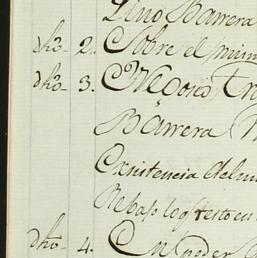 Lino Barrera
dho 2. Sobre el mism
dho 3. Negocio En
Barrera
Existencia del m
Rebajo lo questo en
dho 4. En poder